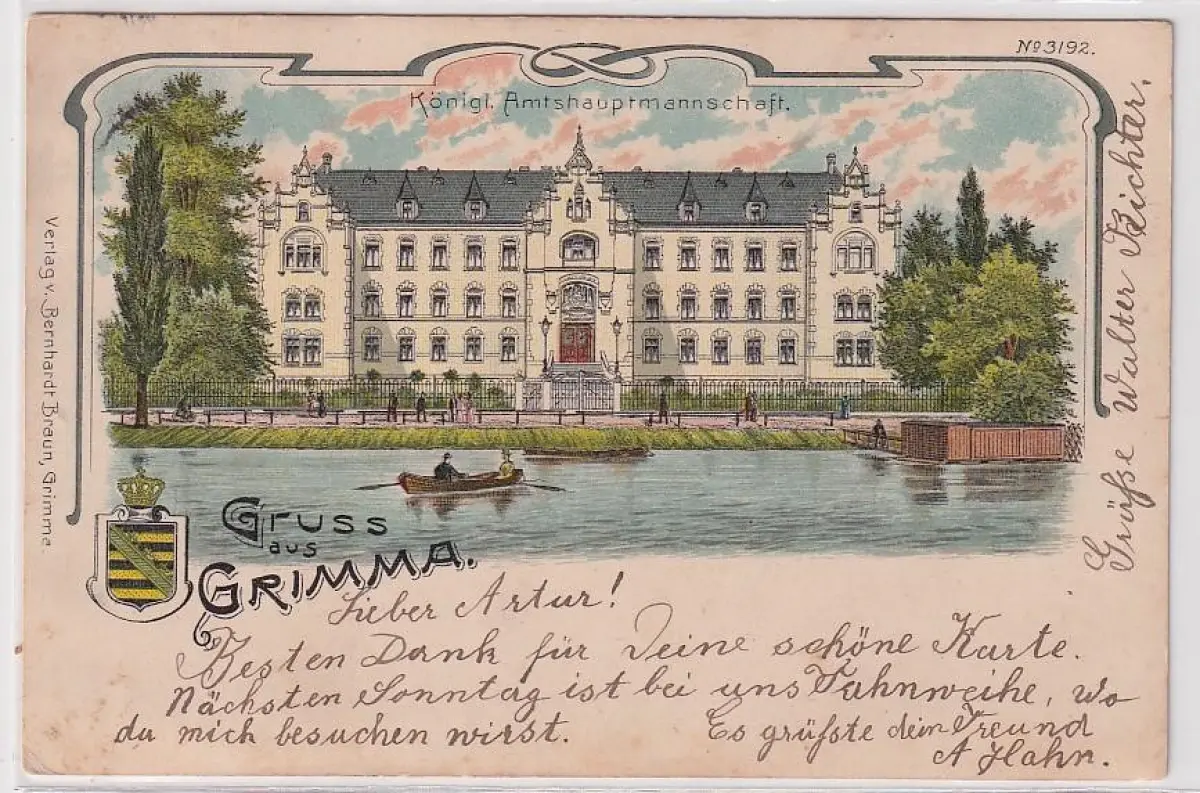 No 3192.
Königl. Amtshauptmannschaft.
Verlag v. Bernhardt Braun, Grimma.
Gruss
aus
GRIMMA.
Lieber Artur!
Besten Dank für Deine schöne Karte.
Nächsten Sonntag ist bei uns Fahnweihe, wo
du mich besuchen wirst.
Es grüßste dein Freund
A Hahn.
Grüße Walter Richter.